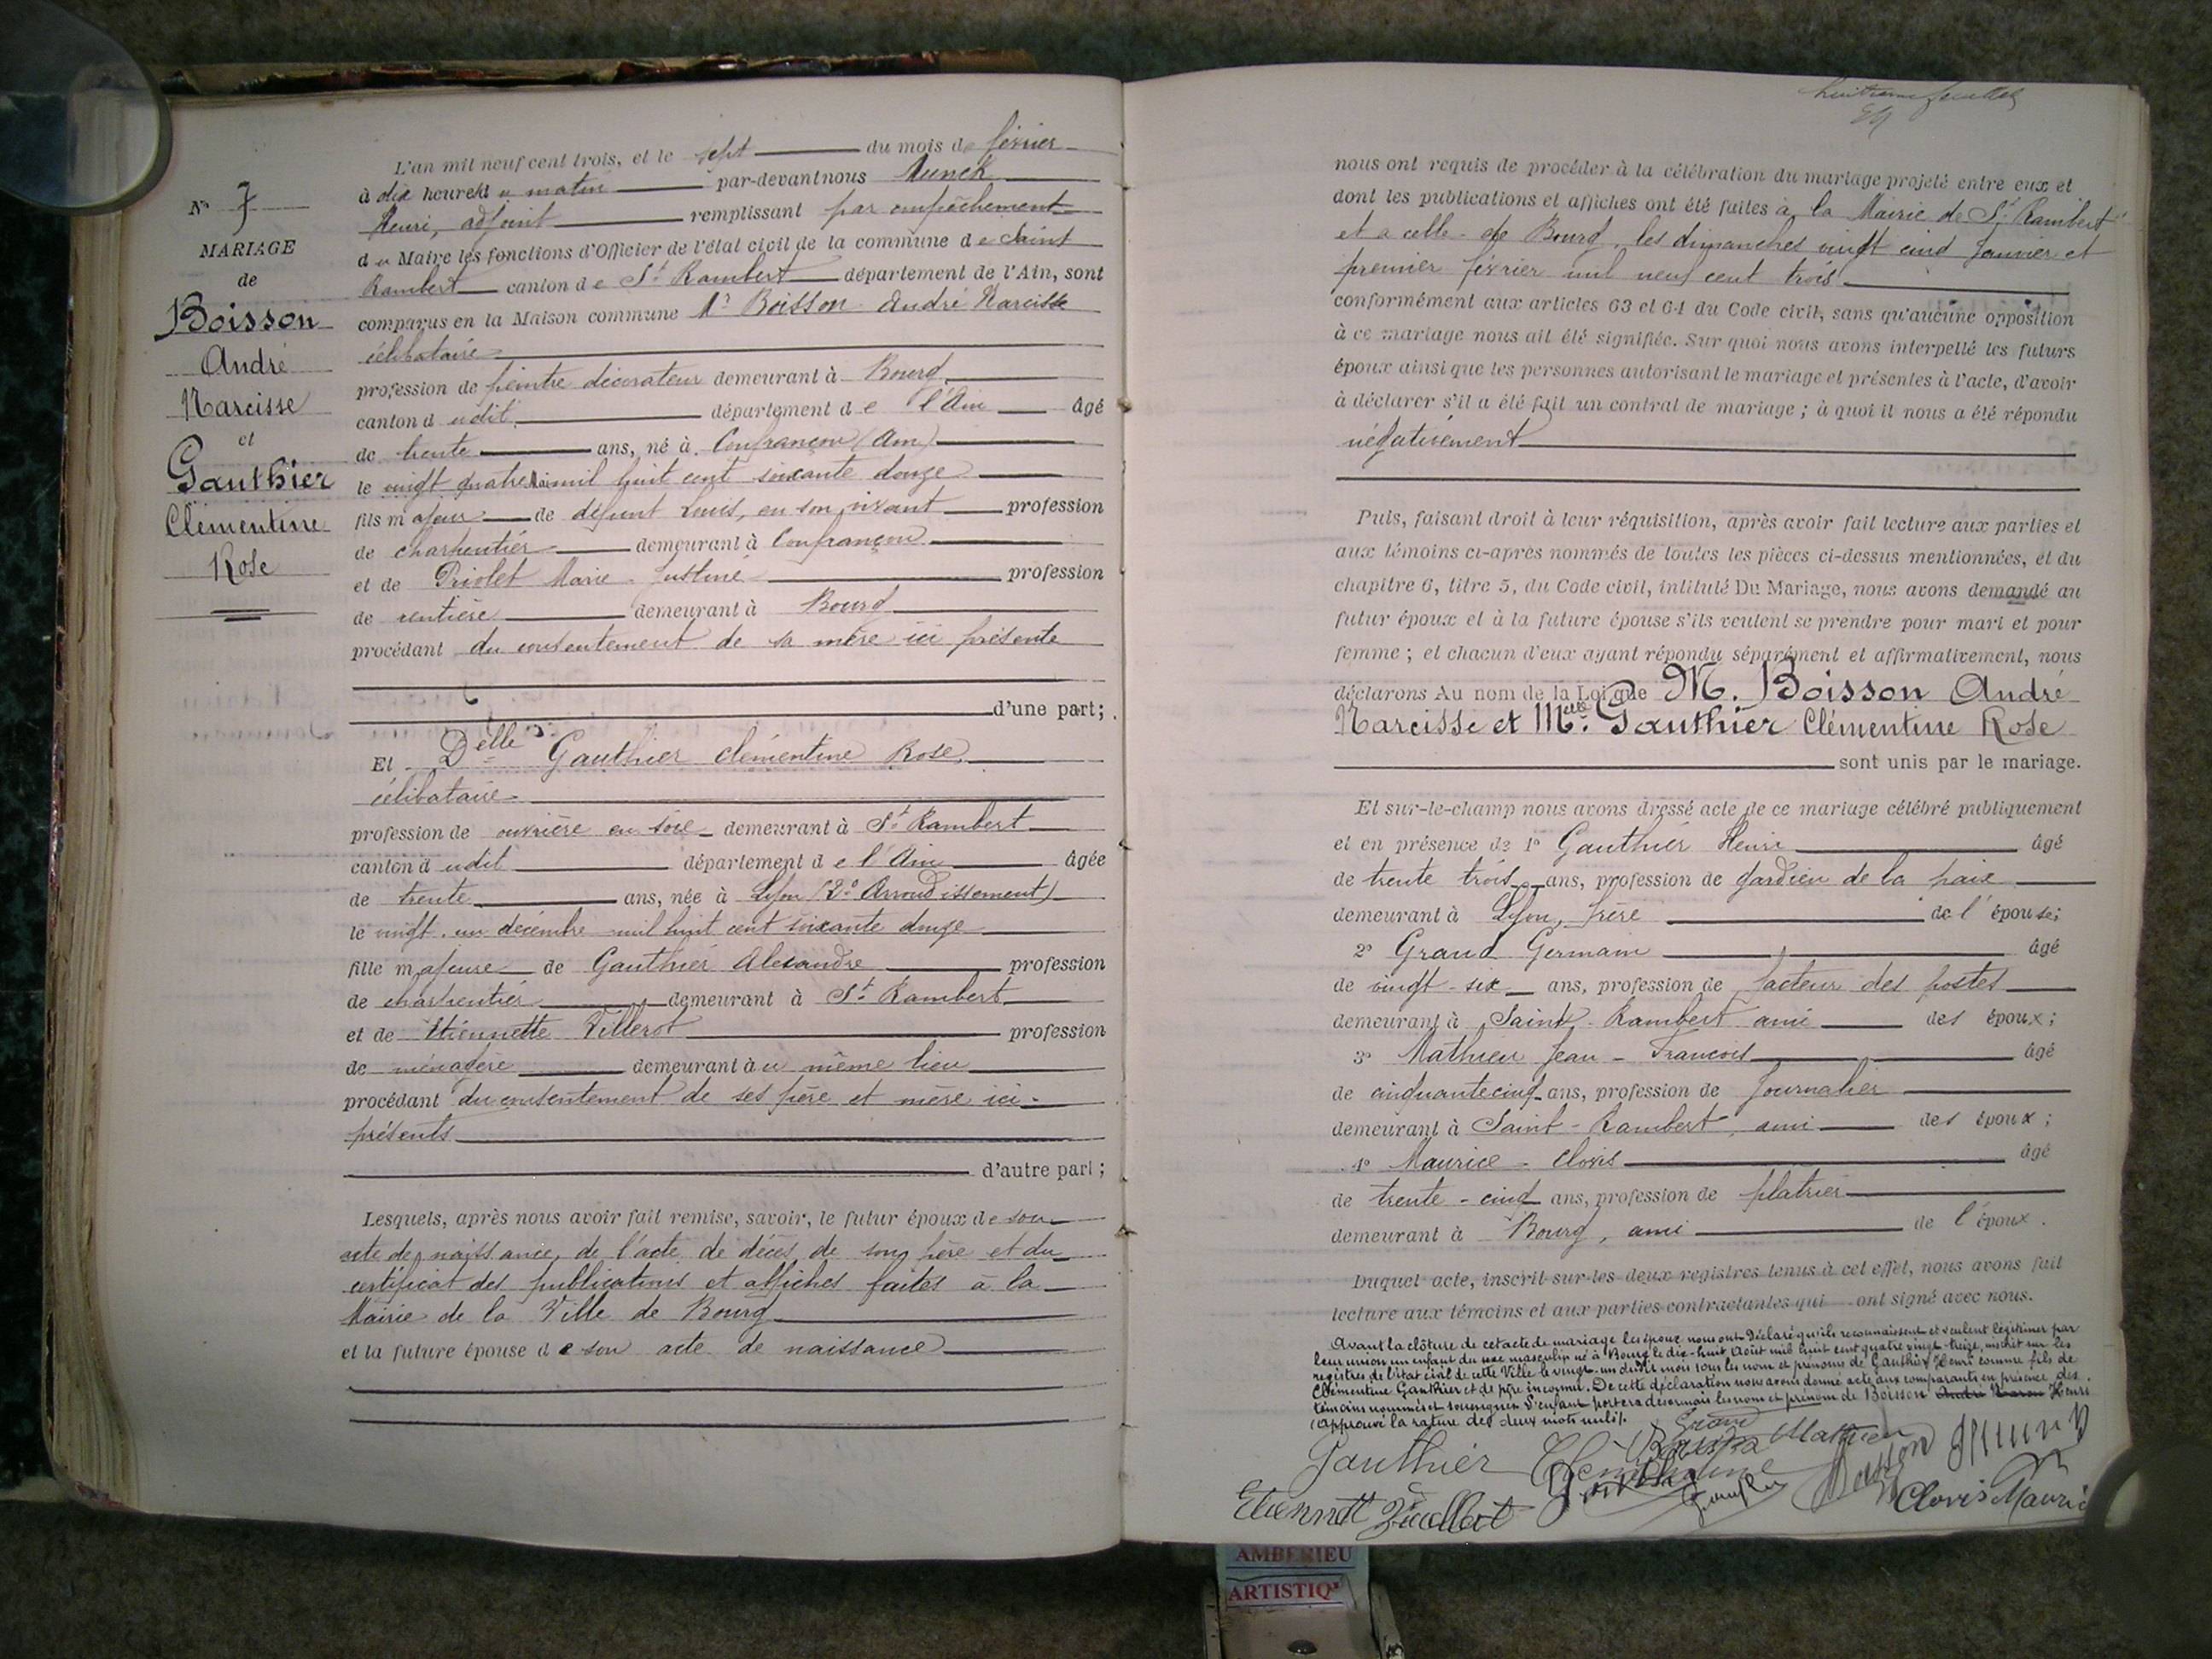 N° 7
MARIAGE
de
Boisson
André
Narcisse
et
Gauthier
Clémentine
Rose
L'an mil neuf cent trois, et le sept du mois de février
à dix heures du matin par-devant nous Munck
Henri, adjoint remplissant par empêchement
du Maire les fonctions d'Officier de l'état civil de la commune de Saint
Rambert canton de St Rambert département de l'Ain, sont
comparus en la Maison commune Mr Boisson André Narcisse
célibataire
profession de peintre décorateur demeurant à Bourg
canton dudit département de l'Ain âgé
de trente ans, né à Confrançon (Ain)
le vingt quatre Mai mil huit cent soixante douze
fils majeur de défunt Louis, en son vivant profession
de charpentier demeurant à Confrançon
et de Priolet Marie Justine profession
de rentière demeurant à Bourg
procédant du consentement de sa mère ici présente
d'une part;
Et Delle Gauthier clémentine Rose,
célibataire
profession de ouvrière en soie demeurant à St Rambert
canton dudit département de l'Ain âgée
de trente ans, née à Lyon (2e Arrondissement)
le vingt-un décembre mil huit cent soixante douze
fille majeure de Gauthier Alexandre profession
de charpentier demeurant à St Rambert
et de Etiennette profession
de ménagère demeurant au même lieu
procédant du consentement de ses père et mère ici
présents
d'autre part;
Lesquels, après nous avoir fait remise, savoir, le futur époux de son
acte de naissance, de l'acte de décès de son père et du
certificat des publications et affiches faites à la
Mairie de la Ville de Bourg
et la future épouse de son acte de naissance
huitième feuillet
nous ont requis de procéder à la célébration du mariage projeté entre eux et
dont les publications et affiches ont été faites à la Mairie de St Rambert
et à celle de Bourg, les dimanches vingt cinq Janvier et
premier février mil neuf cent trois
conformément aux articles 63 et 64 du Code civil, sans qu'aucune opposition
à ce mariage nous ait été signifiée. Sur quoi nous avons interpellé les futurs
époux ainsi que les personnes autorisant le mariage et présentes à l'acte, d'avoir
à déclarer s'il a été fait un contrat de mariage; à quoi il nous a été répondu
négativement
Puis, faisant droit à leur réquisition, après avoir fait lecture aux parties et
aux témoins ci-après nommés de toutes les pièces ci-dessus mentionnées, et du
chapitre 6, titre 5, du Code civil, intitulé Du Mariage, nous avons demandé au
futur époux et à la future épouse s'ils veulent se prendre pour mari et pour
femme; et chacun d'eux ayant répondu séparément et affirmativement, nous
déclarons Au nom de la Loi que M. Boisson André
Narcisse et Melle Gauthier Clémentine Rose
sont unis par le mariage.
Et sur-le-champ nous avons dressé acte de ce mariage célébré publiquement
et en présence de 1° Gauthier Henri âgé
de trente trois ans, profession de gardien de la paix
demeurant à Lyon, frère de l'épouse;
2° Grand Germain âgé
de vingt-six ans, profession de facteur des postes
demeurant à Saint-Rambert ami des époux;
3° Mathieu Jean-François âgé
de cinquante cinq ans, profession de Journalier
demeurant à Saint-Rambert, ami des époux;
4° Maurice Clovis âgé
de trente-cinq ans, profession de platrier
demeurant à Bourg, ami de l'époux.
Duquel acte, inscrit sur les deux registres tenus à cet effet, nous avons fait
lecture aux témoins et aux parties contractantes qui ont signé avec nous.
Avant la clôture de cet acte de mariage les époux nous ont déclaré qu'ils reconnaissent et veulent légitimer par
leur union un enfant du sexe masculin né à Bourg le dix-huit Août mil huit cent quatre vingt-treize, inscrit sur les
registres de l'état civil de cette Ville le vingt-un dudit mois sous les nom et prénoms de Gauthier Henri comme fils de
Clémentine Gauthier et de père inconnu. De cette déclaration nous avons donné acte aux comparants en présence des
témoins nommés et soussignés. L'enfant portera désormais les nom et prénom de Boisson Henri
(Approuvé la rature des deux mots nuls).
Gauthier Clémentine Grand Mathieu
Boisson
Clovis Maurice
AMBERIEU
ARTISTIQ